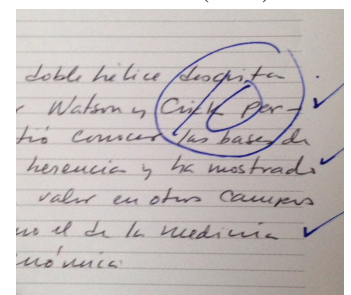 doble hélice descrita
r Watson y Crick per-
tió conocer las bases de
herencia y ha mostrado
valor en otros campos
mo el de la medicina
nómica
10